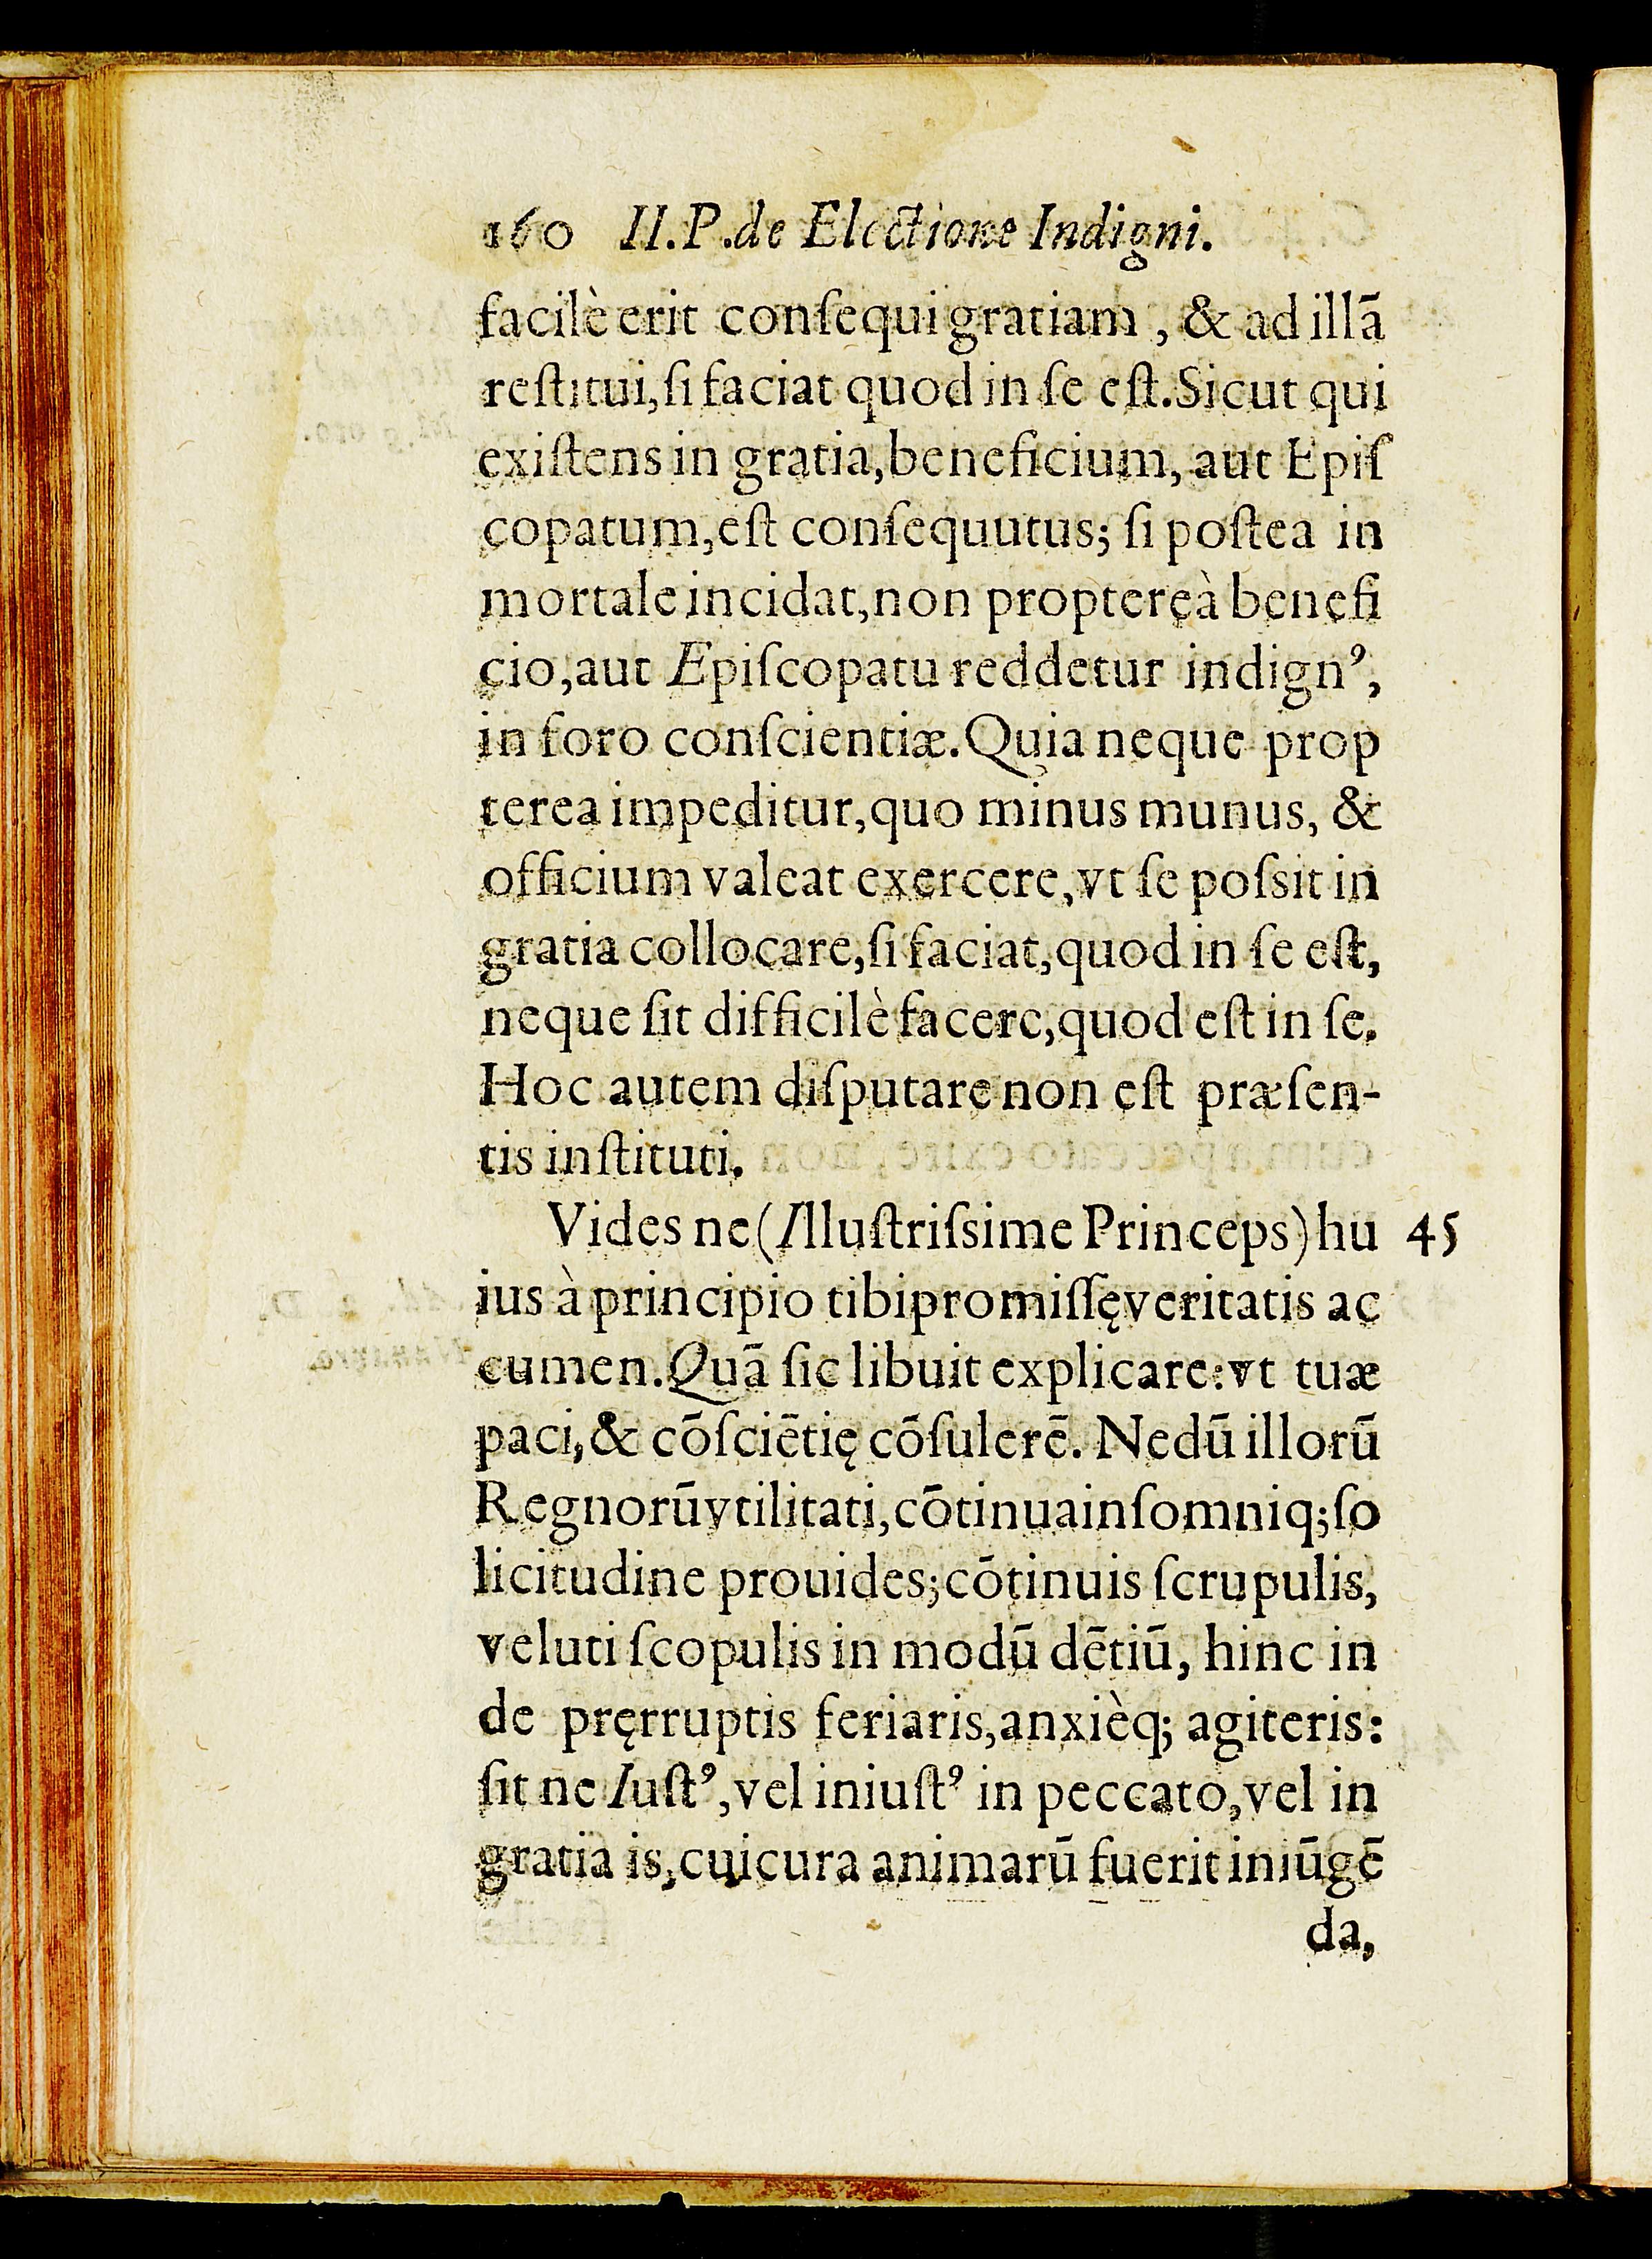 160 II.P.de Electione Indigni.
facilè erit conſequi gratiam, & ad illā
reſtitui, ſi faciat quod in ſe eſt. Sicut qui
exiſtens in gratia, beneficium, aut Epiſ
copatum, eſt conſequutus; ſi poſtea in
mortale incidat, non proptereà benefi
cio, aut Epiſcopatu reddetur indignꝰ,
in foro conſcientiæ. Quia neque prop
terea impeditur, quo minus munus, &
officium valeat exercere, vt ſe poſsit in
gratia collocare, ſi faciat, quod in ſe eſt,
neque ſit difficilè facere, quod eſt in ſe.
Hoc autem diſputare non eſt præſen-
tis inſtituti.
Vides ne (Illuſtriſsime Princeps) hu 45
ius à principio tibi promiſſę veritatis ac
cumen. Quā ſic libuit explicare: vt tuæ
paci, & cōſciētię cōſulerē. Nedū illorū
Regnorū vtilitati, cōtinua inſomniq; ſo
licitudine prouides; cōtinuis ſcrupulis,
veluti ſcopulis in modū dētiū, hinc in
de pręrruptis feriaris, anxièq; agiteris:
ſit ne Iuſtꝰ, vel iniuſtꝰ in peccato, vel in
gratia is, cui cura animarū fuerit iniūgē
da,